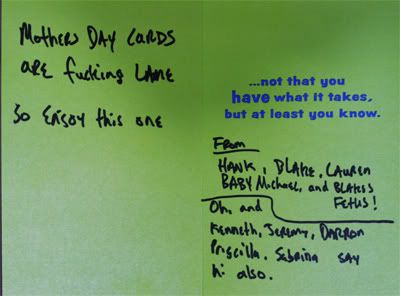 MOTHERS DAY CARDS
ARE fucking LAME
So ENJOY this one
...not that you
have what it takes,
but at least you know.
From
HANK, BLAKE, LAUREN
BABY Michael, and BLAKES
FETUS!
Oh, and
Kenneth, Jeremy, DARRON
Priscilla, Sabrina SAY
hi also.